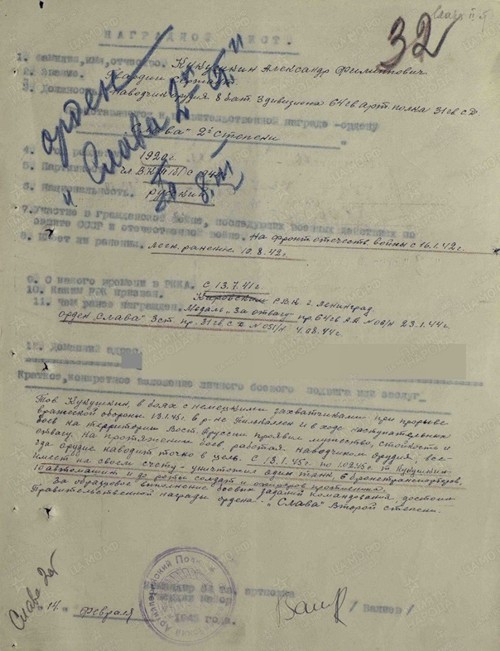 Слава II ст
32
НАГРАДНОЙ ЛИСТ.
1. Фамилия, имя, отчество. Кукушкин Александр Филиппович
2. Звание. Гвардии
3. Должность наводчик орудия 8 бат. 3 дивизиона 64 гв арт полка 31 гв с.д.
правительственной награде - ордену
"Слава" 2й степени
орден "Слава 2 ст"
30 8
4. 1920 г.
5. чл ВКП(б) с
6. Национальность. русский
7. Участие в Гражданской войне, последующих боевых действиях по
защите СССР и отечественной войне. На фронте отечеств войны с 16.1.42 г.
8. Имеет ли ранения. легк. ранение 10.8.42 г.
9. С какого времени в РККА. с 13.7.41 г.
10. Каким РВК призван. Кировским РВК г. Ленинград
11. Чем ранее награжден. Медаль "За отвагу" пр. 64 гв. АП 23.1.44 г.
Орден "Слава" 3 ст. пр. 31 гв. с.д. № 051/н 4.08.44 г.
12. Домашний адрес.
Краткое, конкретное изложение личного боевого подвига или заслуг
Тов Кукушкин в боях с немецкими захватчиками при прорыве
вражеской обороны 13.1.45 г. в р-не и в ходе наступательных
боев на территории Вост. Пруссии проявил мужество, стойкость и
отвагу. На протяжении боев, работая наводчиком орудия, все-
гда орудие наводит точно в цель. С 13.1.45 г. по 10.2.45 г. т. Кукушкин
имеет на своем счету - уничтожил один танк, 6 бронетранспортеров,
10 автомашин и до роты солдат и офицеров противника.
За образцовое выполнение боевых заданий командования, достоин
Правительственной награды ордена "Слава" Второй степени.
Командир 64 гв. артполка
гвардии майор
/ Валиев /
Слава 2 ст
"14" февраля 1945 года.